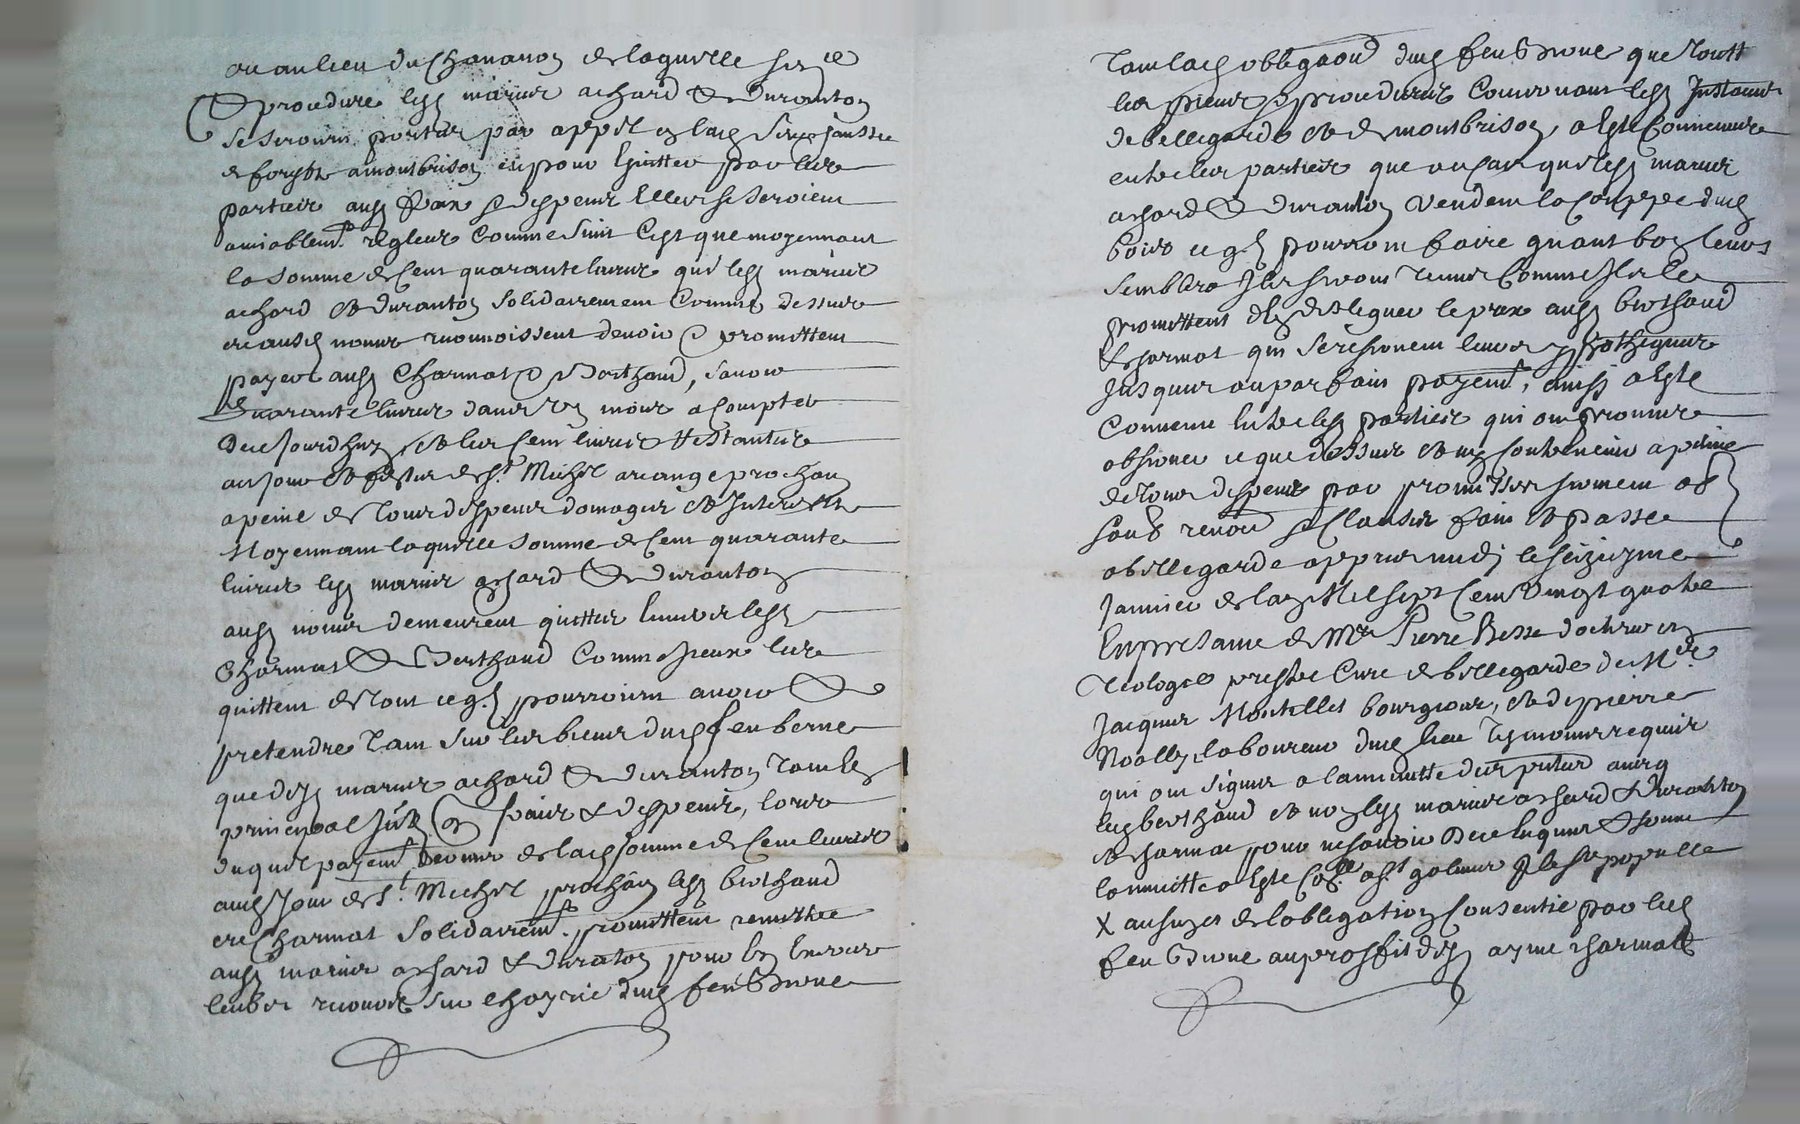 ou au lieu du Chavanon de laquelle sence
& procedure lesd mariez achard & duranton
se seroint portes par appel en lad senechaussee
de forestz a montbrison et pour Esvitter par les
parties aux fraix & despens Elles se seroient
amiablemt regleur Comme suit Cest que moyennant
la somme de Cent quarante livres que lesd mariez
achard et duranton solidairement Comme dessus
et ausd noms recnoissent devoir & promettent
payer ausd Charmat & Berthaud, savoir
quarante livres dans un mois a Compter
de ce Jourdhuy, et les Cent livres restantes
au jour et feste de st Michel arcange prochain
a peine de tous despens domages et Interestz
Moyennant laquelle somme de Cent quarante
livres lesd mariez achard & duranton
ausd noms demeurent quittes Envers lesd
Charmat & Berthaud Comme Iceux les
quittent de tout ce qd pourroient avoir &
pretendre tant sur les biens dud feu berne
que desd mariez achard & duranton tant en
principal Intz que fraix & despens, lors
duquel payemt dernier de lad somme de Cent livres
aud Jour de st Michel prochain lesd berthaud
et Charmat solidairemt promettent remettre
ausd mariez achard & duranton pour en Exercer
leurs recours sur lhoyrie dud feu Berne
tant lad obligaon dud feu Berne que toutes
les pieces & procedures Concernant lesd Instances
de bellegarde et de montbrison, a Este Convenu
entre les parties que au cas que lesd mariez
achard & duranton vendent la Couppe dud
bois ce qd pourront faire quant bon leurs
semblera Ils seront tenus Comme Ils le
promettent den desleguer le prix ausd berthaud
& charmat qui se reservent leurs hypotheques
Jusques au parfait payemt, ainsi a Este
Convenu Entre lesd parties qui ont promis
observer ce que dessus et ny Contrevenir a peine
de tous despens par promesses serment obs
soubs renon & Clauses fait et passe
a bellegarde appres midi le seizieme
Janvier de lan Mil sept Cent vingt quatre
En presance de Mre Pierre Besse docteur en
Teologie prestre Cure de bellegarde de Mr
Jacques Montellet bourgeois, et de pierre
Noally laboureur dud lieu tesmoins requis
qui ont signes a la minutte des presentes avecq
led berthaud et non lesd mariez achard & duranton
et charmat pour ne savoir de ce Enquis & sommes
la minutte a Este Collee a st galmier
X au suject de lobligation Consentie par led
feu Berne au proffit desd ayme charmatt